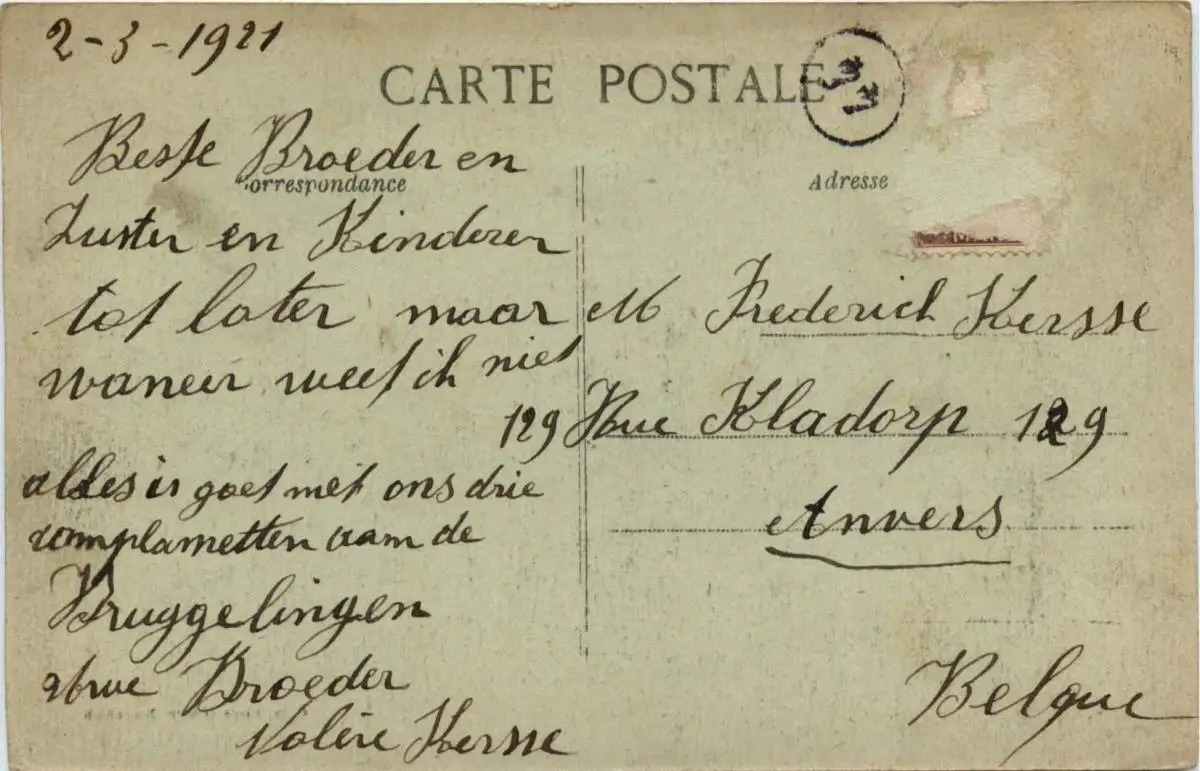 2-3-1921
CARTE POSTALE
Beste Broeder en
Correspondance
Zuster en Kinderen
tot later maar
waneer weet ik niet
alles is goet met ons drie
complametten aam de
Bruggelingen
Broeder
Valère Kersse
Adresse
M Frederich Kersse
129 Rue Kladorp 129
Anvers
Belque